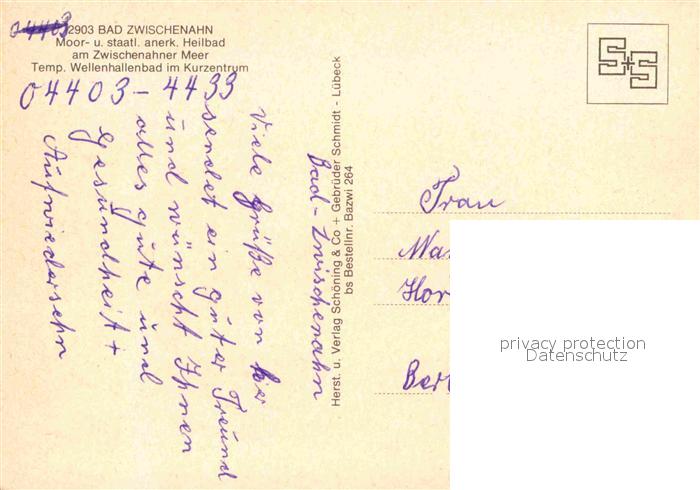 04403
2903 BAD ZWISCHENAHN
Moor- u. staatl. anerk. Heilbad
am Zwischenahner Meer
Temp. Wellenhallenbad im Kurzentrum
04403-4433
Viele Grüße von her
sendet ein guter Freund
und wünscht Ihnen
alles gute und
Gesundheit +
Aufwiedersehn
Bad-Zwischenahn
Herst. u. Verlag Schöning & Co + Gebrüder Schmidt - Lübeck
bs Bestellnr. Bazwi 264
S+S
Frau
privacy protection
Datenschutz